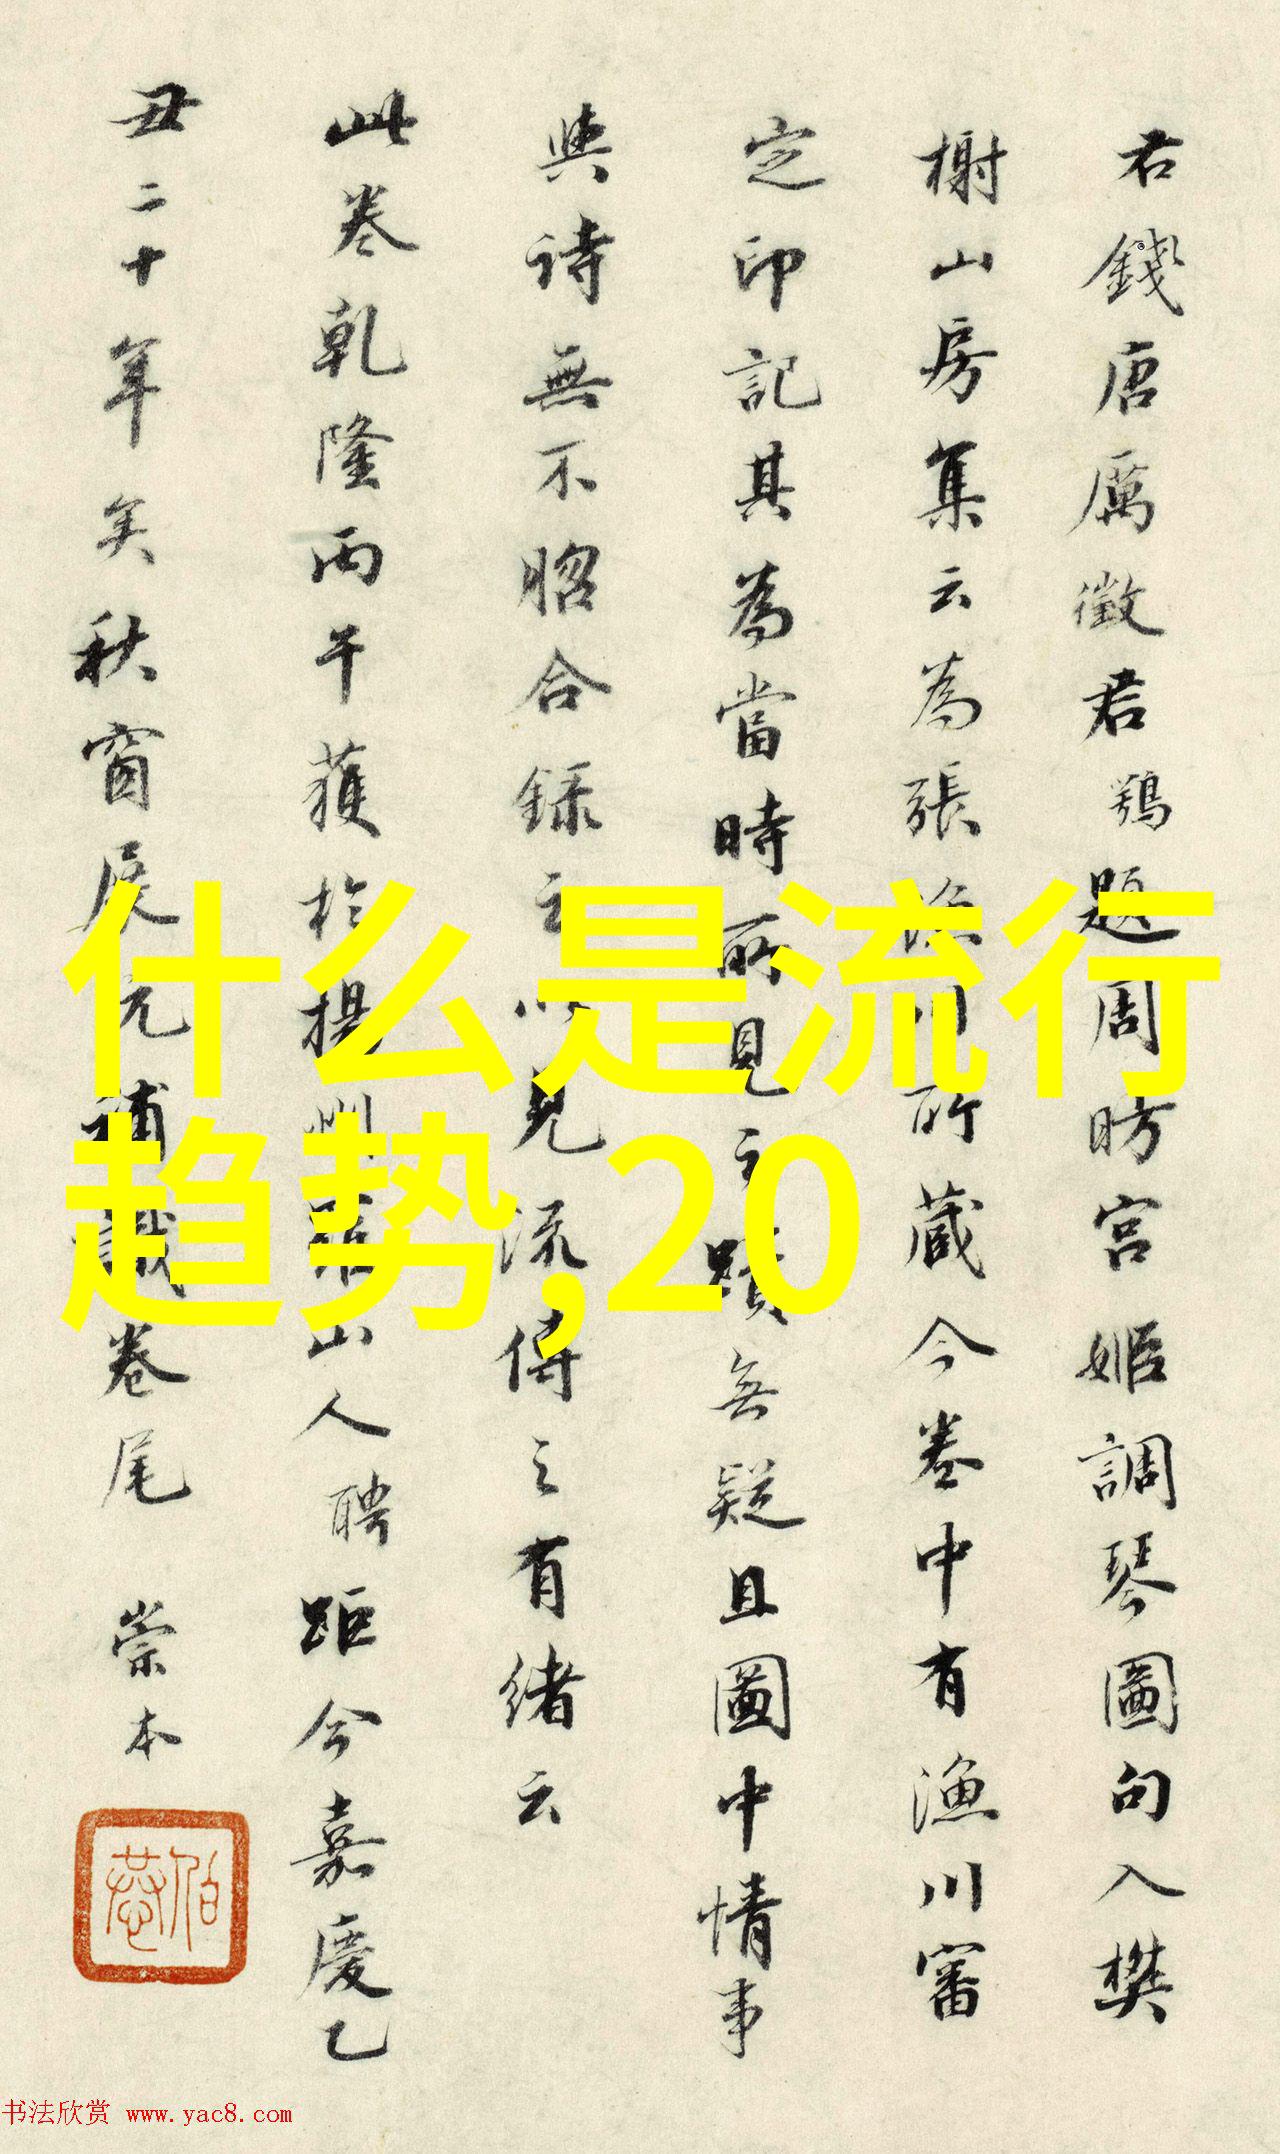 君錢唐厲徵君鶚題周昉宮姬調琴圖句入樊
榭山房集云為張漁川所蔵今卷中有漁川審
定印記其為當時所見之蹟無疑且圖中情事
與詩無不脗合録之以見流傳之有緒云
此卷乾隆丙午獲於揚州 山人聘距今嘉慶乙
丑二十年矣秋窗展玩補識卷尾 崇本
什么是流行
趋势,20
书法欣赏 www.yac8.com